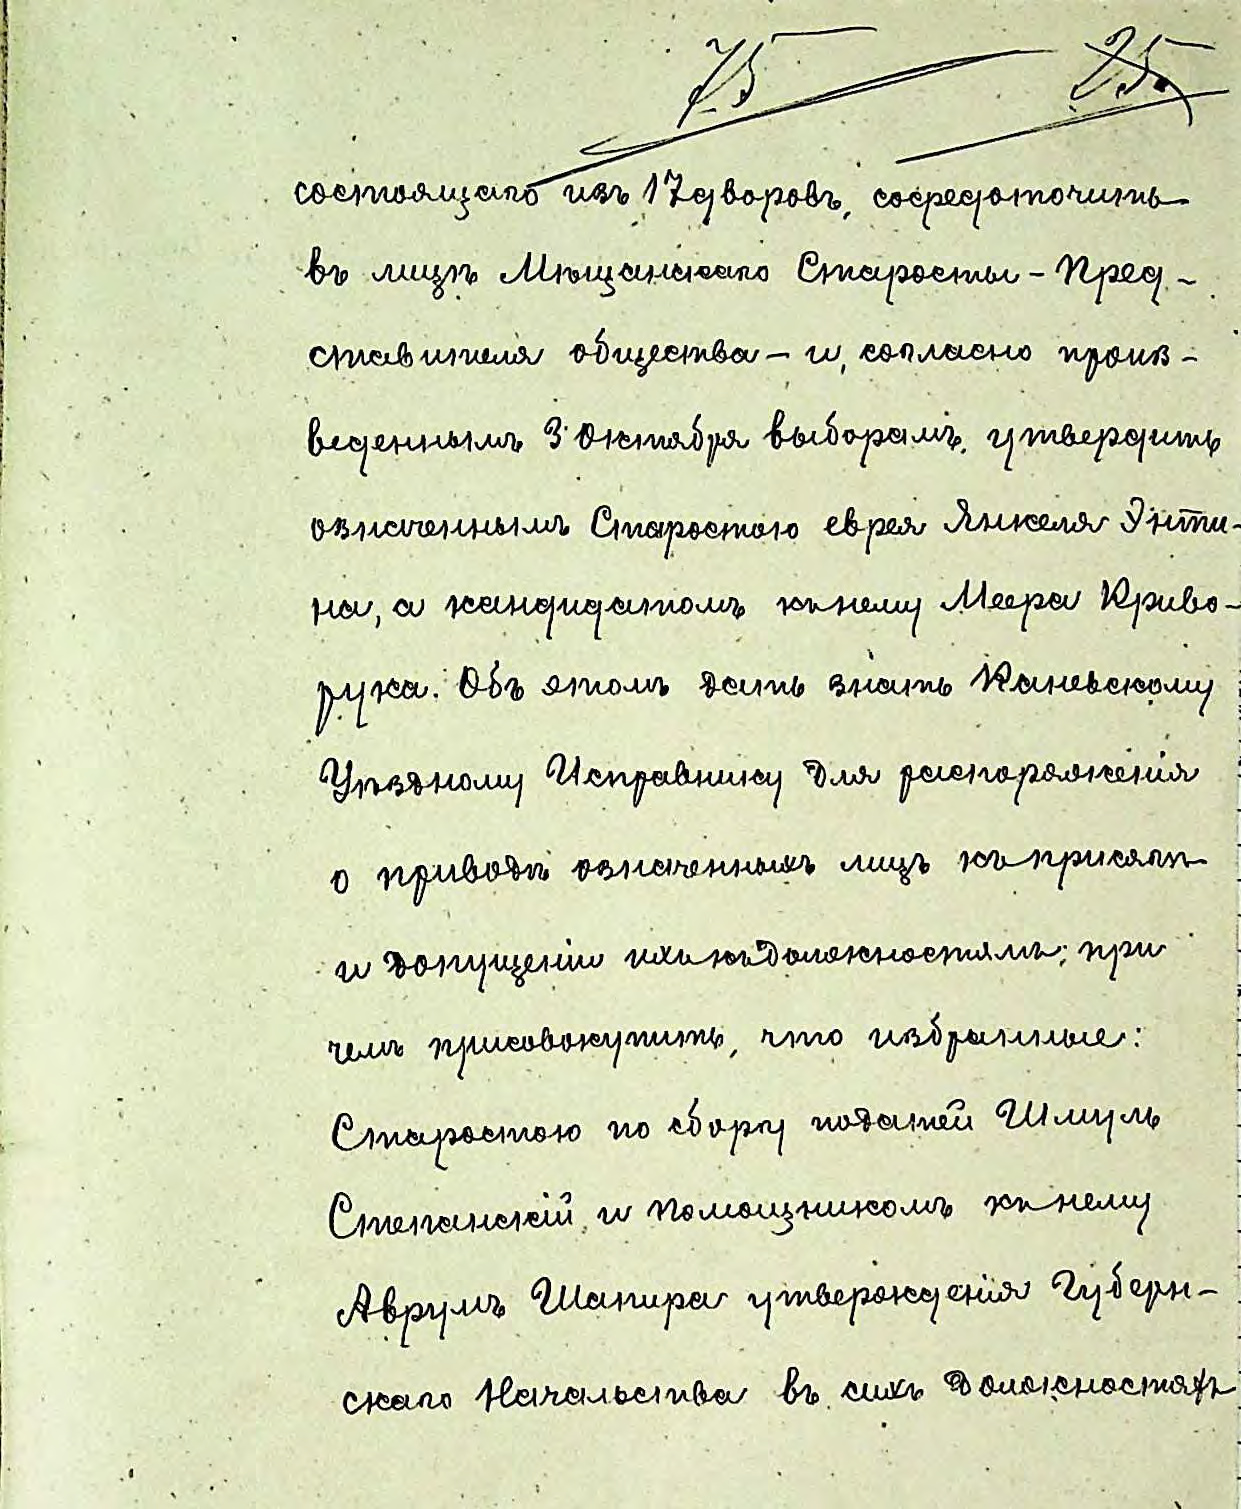 75 25.
состоящаго изъ 17 дворовъ, сосредоточить
въ лицѣ Мѣщанскаго Старосты – Пред-
ставителя общества – и, согласно произ-
веденнымъ 3 Октября выборамъ, утвердить
означеннымъ Старостою еврея Янкеля Энти-
на, а кандидатомъ къ нему Меера Криво-
рука. Объ этомъ дать знать Каневскому
Уѣздному Исправнику для распоряженія
о приводѣ означенныхъ лицъ къ присягѣ
и допущеніи ихъ къ должностямъ; при
чемъ присовокупить, что избранные:
Старостою по сбору податей Шмуль
Степанскій и помощникомъ къ нему
Аврумъ Шапира утвержденія Губерн-
скаго Начальства въ сихъ должностяхъ